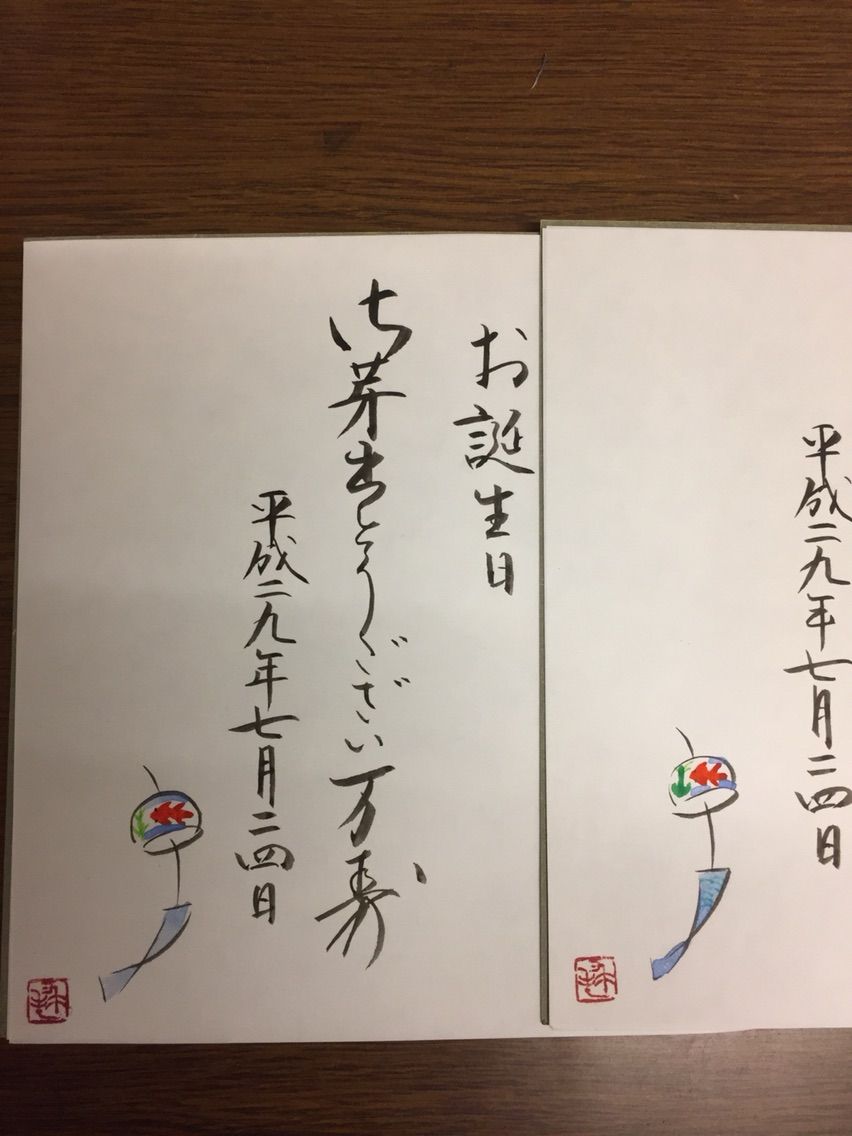 平成二九年七月二四日
お誕生日
御芽出とうござい万寿
平成二九年七月二四日